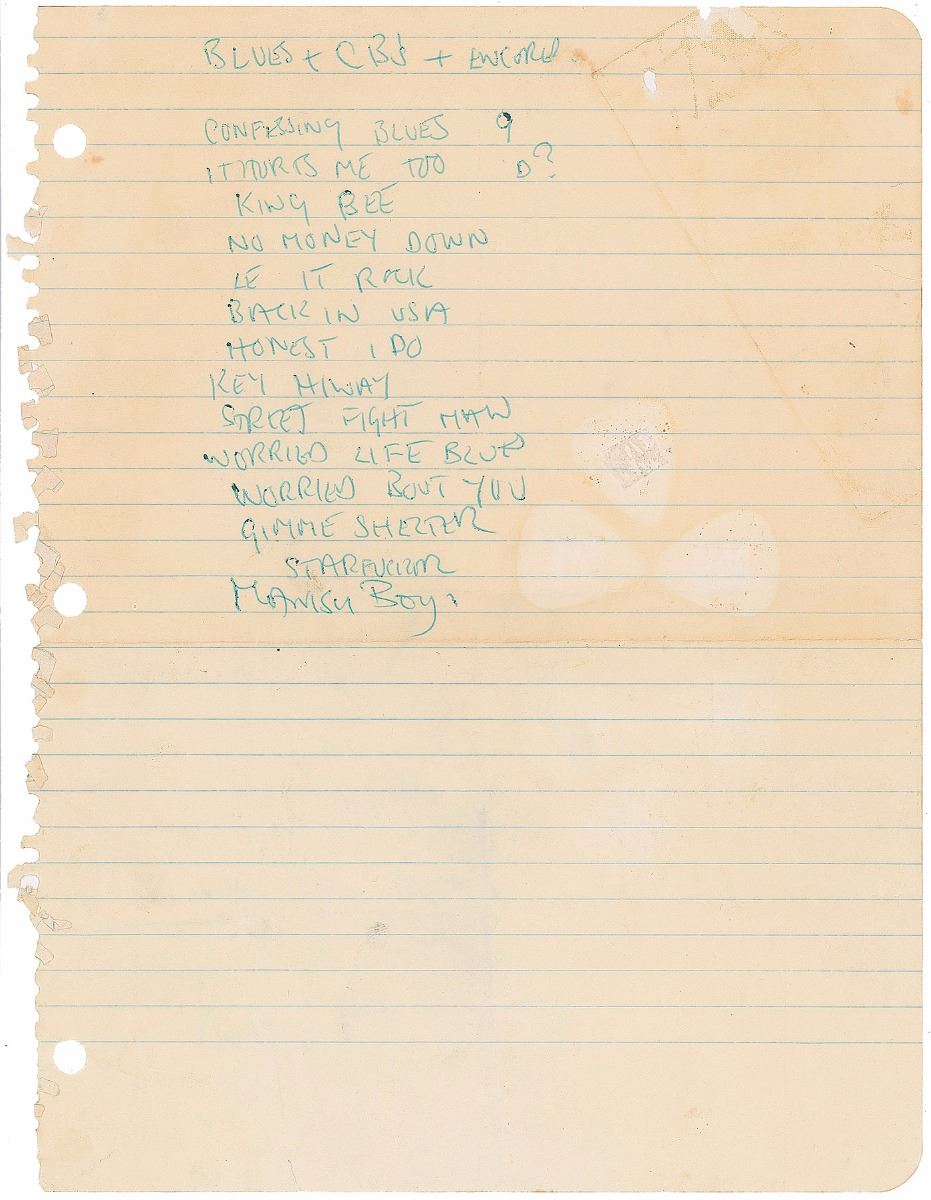 BLUES + CB'S + ENCORES.
CONFESSING BLUES G
IT HURTS ME TOO D?
KING BEE
NO MONEY DOWN
LE IT ROCK
BACK IN USA
HONEST I DO
KEY HIWAY
STREET FIGHT MAN
WORRIED LIFE BLUES
WORRIED BOUT YOU
GIMME SHELTER
STARFUCKER
MANISH BOY